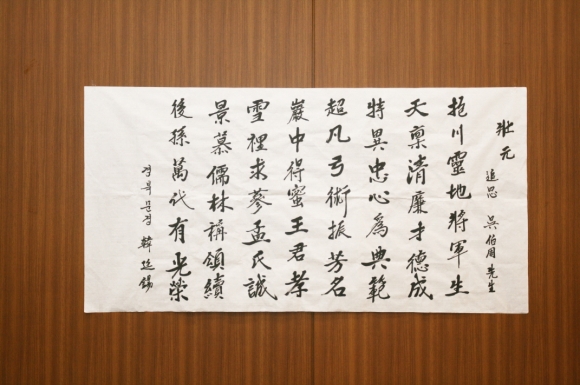 壯元
追思 吳伯周先生
抱川靈地將軍生
天稟清廉才德成
特異忠心為典範
超凡弓術振芳名
巖中得蜜王君孝
雪裡求蔘孟氏誠
景慕儒林稱頌續
後孫萬代有光榮
경북문경 韓延錫